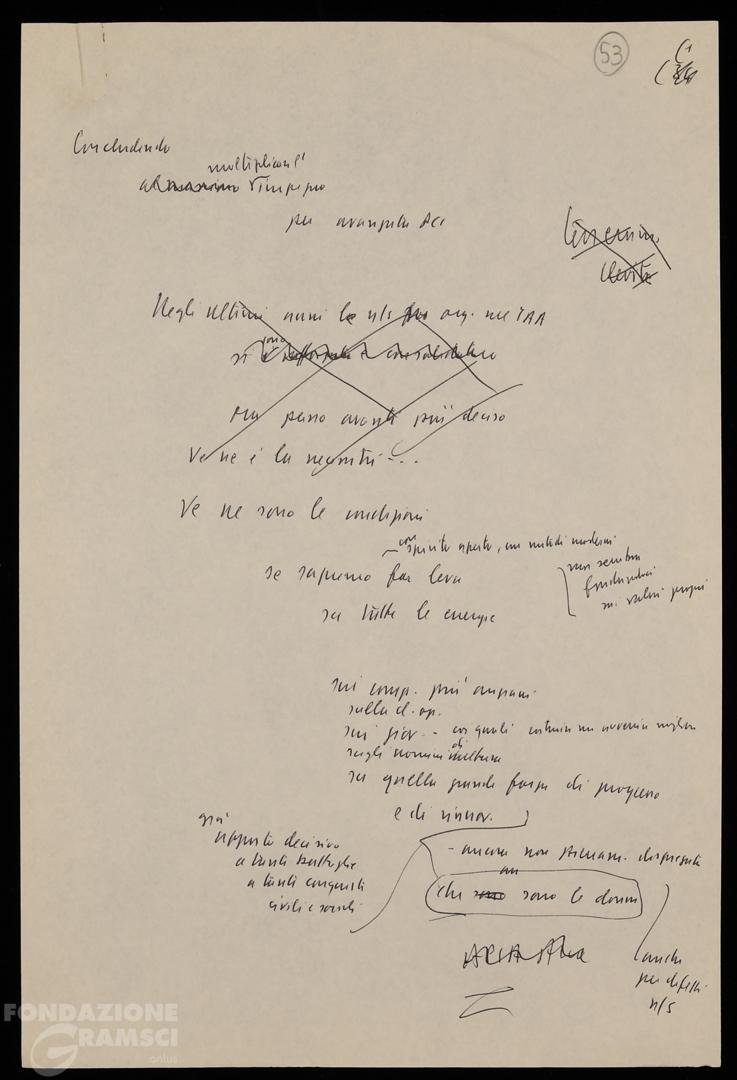 53
Concludendo
moltiplicare l'
l'impegno
per avanzata
Negli ultimi anni le n/s org.
si sono
passo avanti più deciso
Ve ne è la necessità...
Ve ne sono le condizioni
con spirito aperto, con metodi moderni
se sapremo far leva
non sembra
sui valori propri
su tutte le energie
sui comp. più anziani
sulla cl. op.
sui giov. - coi quali costruire un avvenire migliore
sugli uomini di cultura
su quella grande forza di progresso
e di rinnov.
già
apporto decisivo
a tante battaglie
a tante conquiste
civili e sociali
- ancora non dispiegata
che sono le donne
anche
per difetti
n/s
FONDAZIONE
GRAMSCI
onlus